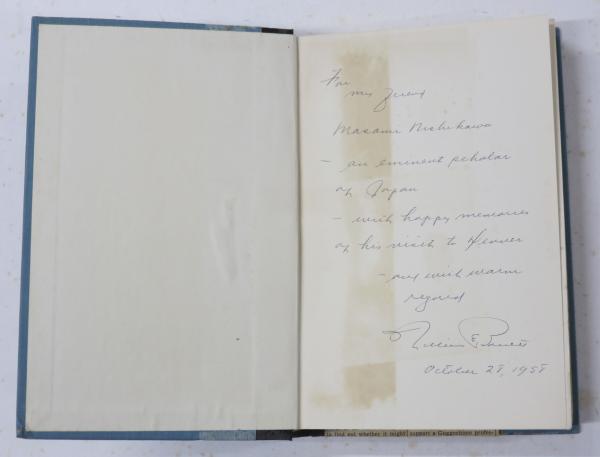 For
my friend
Masami Nishikawa
- an eminent scholar
of Japan
- with happy memories
of his visit to Denver
- and with warm
regard
William E. Barrett
October 28, 1958
to find out whether it might support a Guggenheim profes-